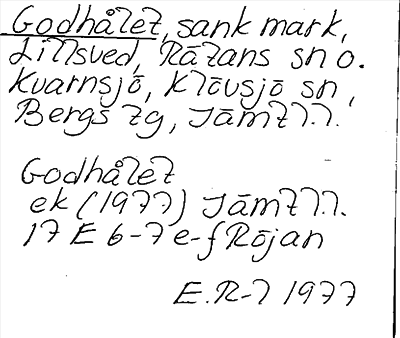 Godhålet, sank mark,
Lillsved, Rätans sn o.
Kvarnsjö, Klövsjö sn,
Bergs tg, Jämtl.l.
Godhålet
ek (1977) Jämtl.l.
17 E 6-7 e-f Röjan
E.R-l 1977